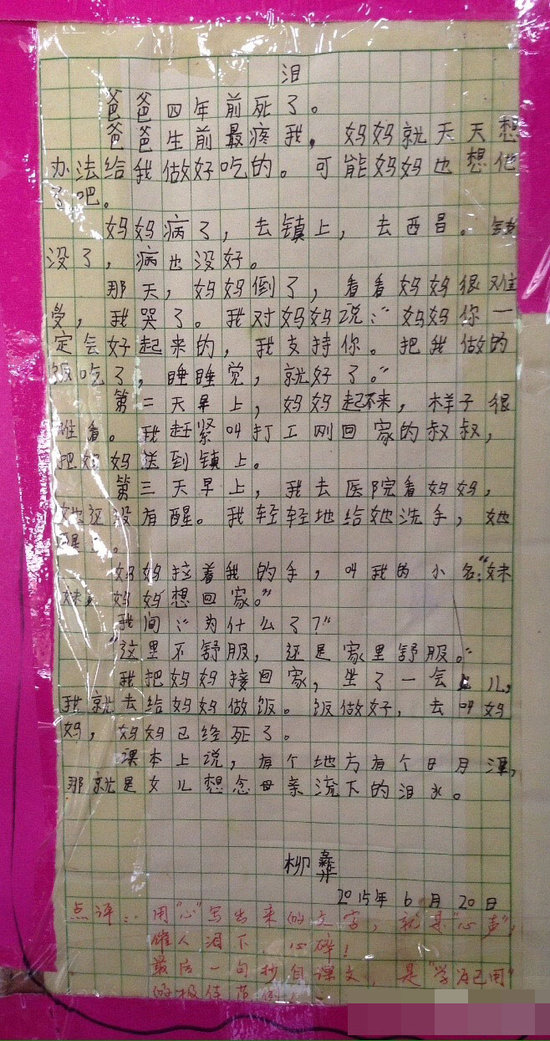 泪
爸爸四年前死了。
爸爸生前最疼我,妈妈就天天想
办法给我做好吃的。可能妈妈也想他
了吧。
妈妈病了,去镇上,去西昌。钱
没了,病也没好。
那天,妈妈倒了,看看妈妈很难
受,我哭了。我对妈妈说:“妈妈你一
定会好起来的,我支持你。把我做的
饭吃了,睡睡觉,就好了。”
第二天早上,妈妈起不来,样子很
难看。我赶紧叫打工刚回家的叔叔,
把妈妈送到镇上。
第三天早上,我去医院看妈妈,
她还没有醒。我轻轻地给她洗手,她
醒了。
妈妈拉着我的手,叫我的小名:“妹
妹,妈妈想回家。”
我问:“为什么了?”
“这里不舒服,还是家里舒服。”
我把妈妈接回家,坐了一会儿,
我就去给妈妈做饭。饭做好,去叫妈
妈,妈妈已经死了。
课本上说,有个地方有个日月潭,
那就是女儿想念母亲流下的泪水。
柳彝
2015年6月20日
点评:用“心”写出来的文字,就是“心声”,
催人泪下,心碎!
最后一句抄自课文,是“学为己用”
的极佳范例